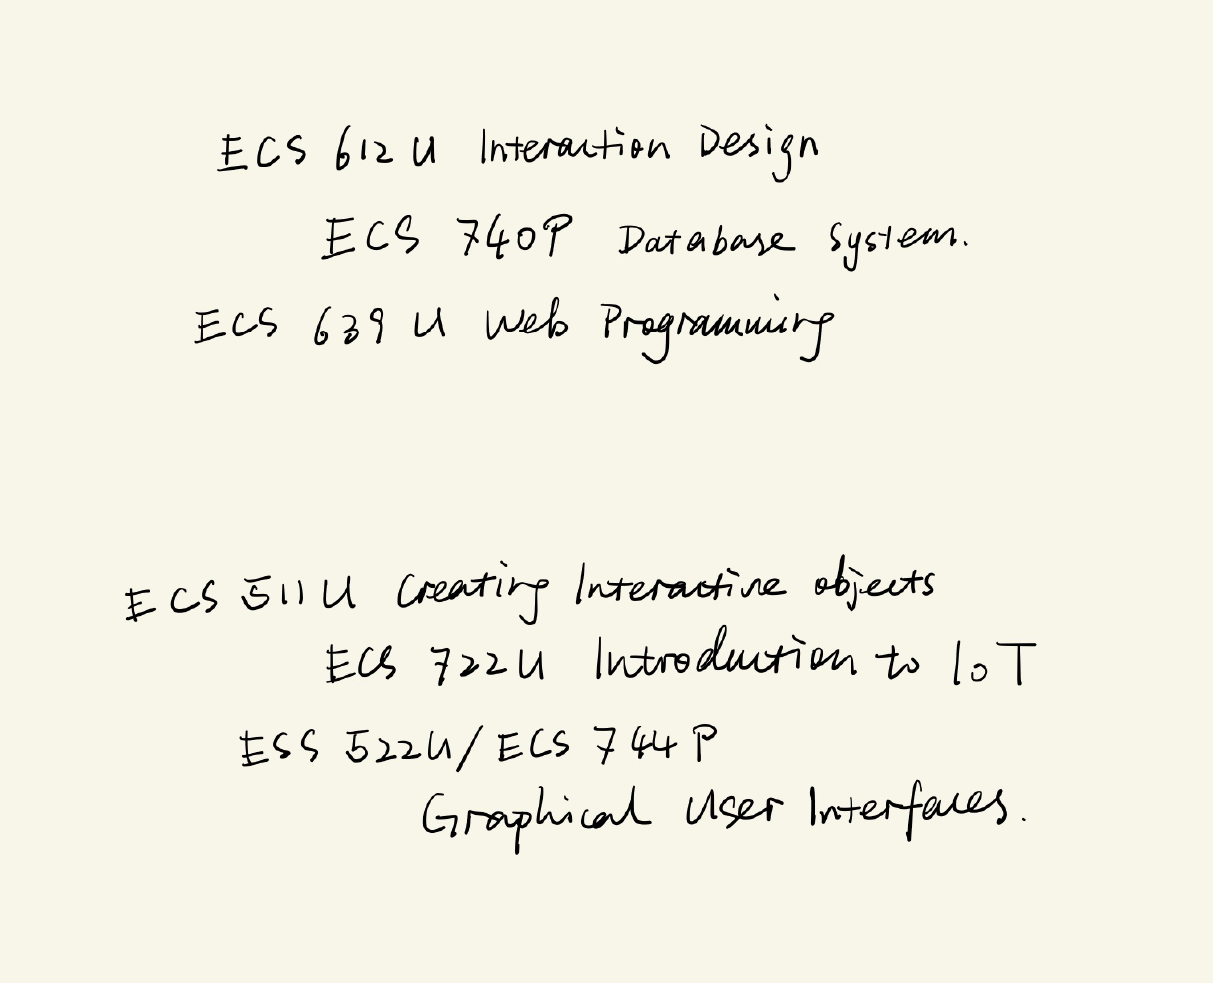 ECS 612U Interaction Design
ECS 740P Database System.
ECS 639U Web Programming
ECS 511U Creating Interactive objects
ECS 722U Introduction to IoT
ESS 522U/ECS 744P
Graphical User Interfaces.